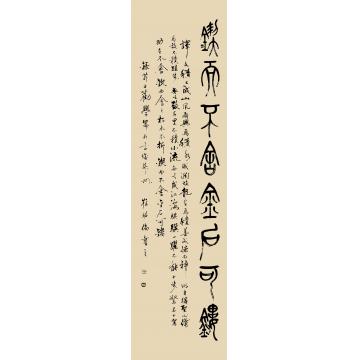 鍥而不舍金石可鏤
積土成山風雨興焉積水成淵蛟龍生焉積善成德而神明自得聖心備
焉故不積跬步無以至千里不積小流無以成江海騏驥一躍不能十步駑馬十駕
功在不舍鍥而舍之朽木不折鍥而不舍金石可鏤
錄荀子勸學篇